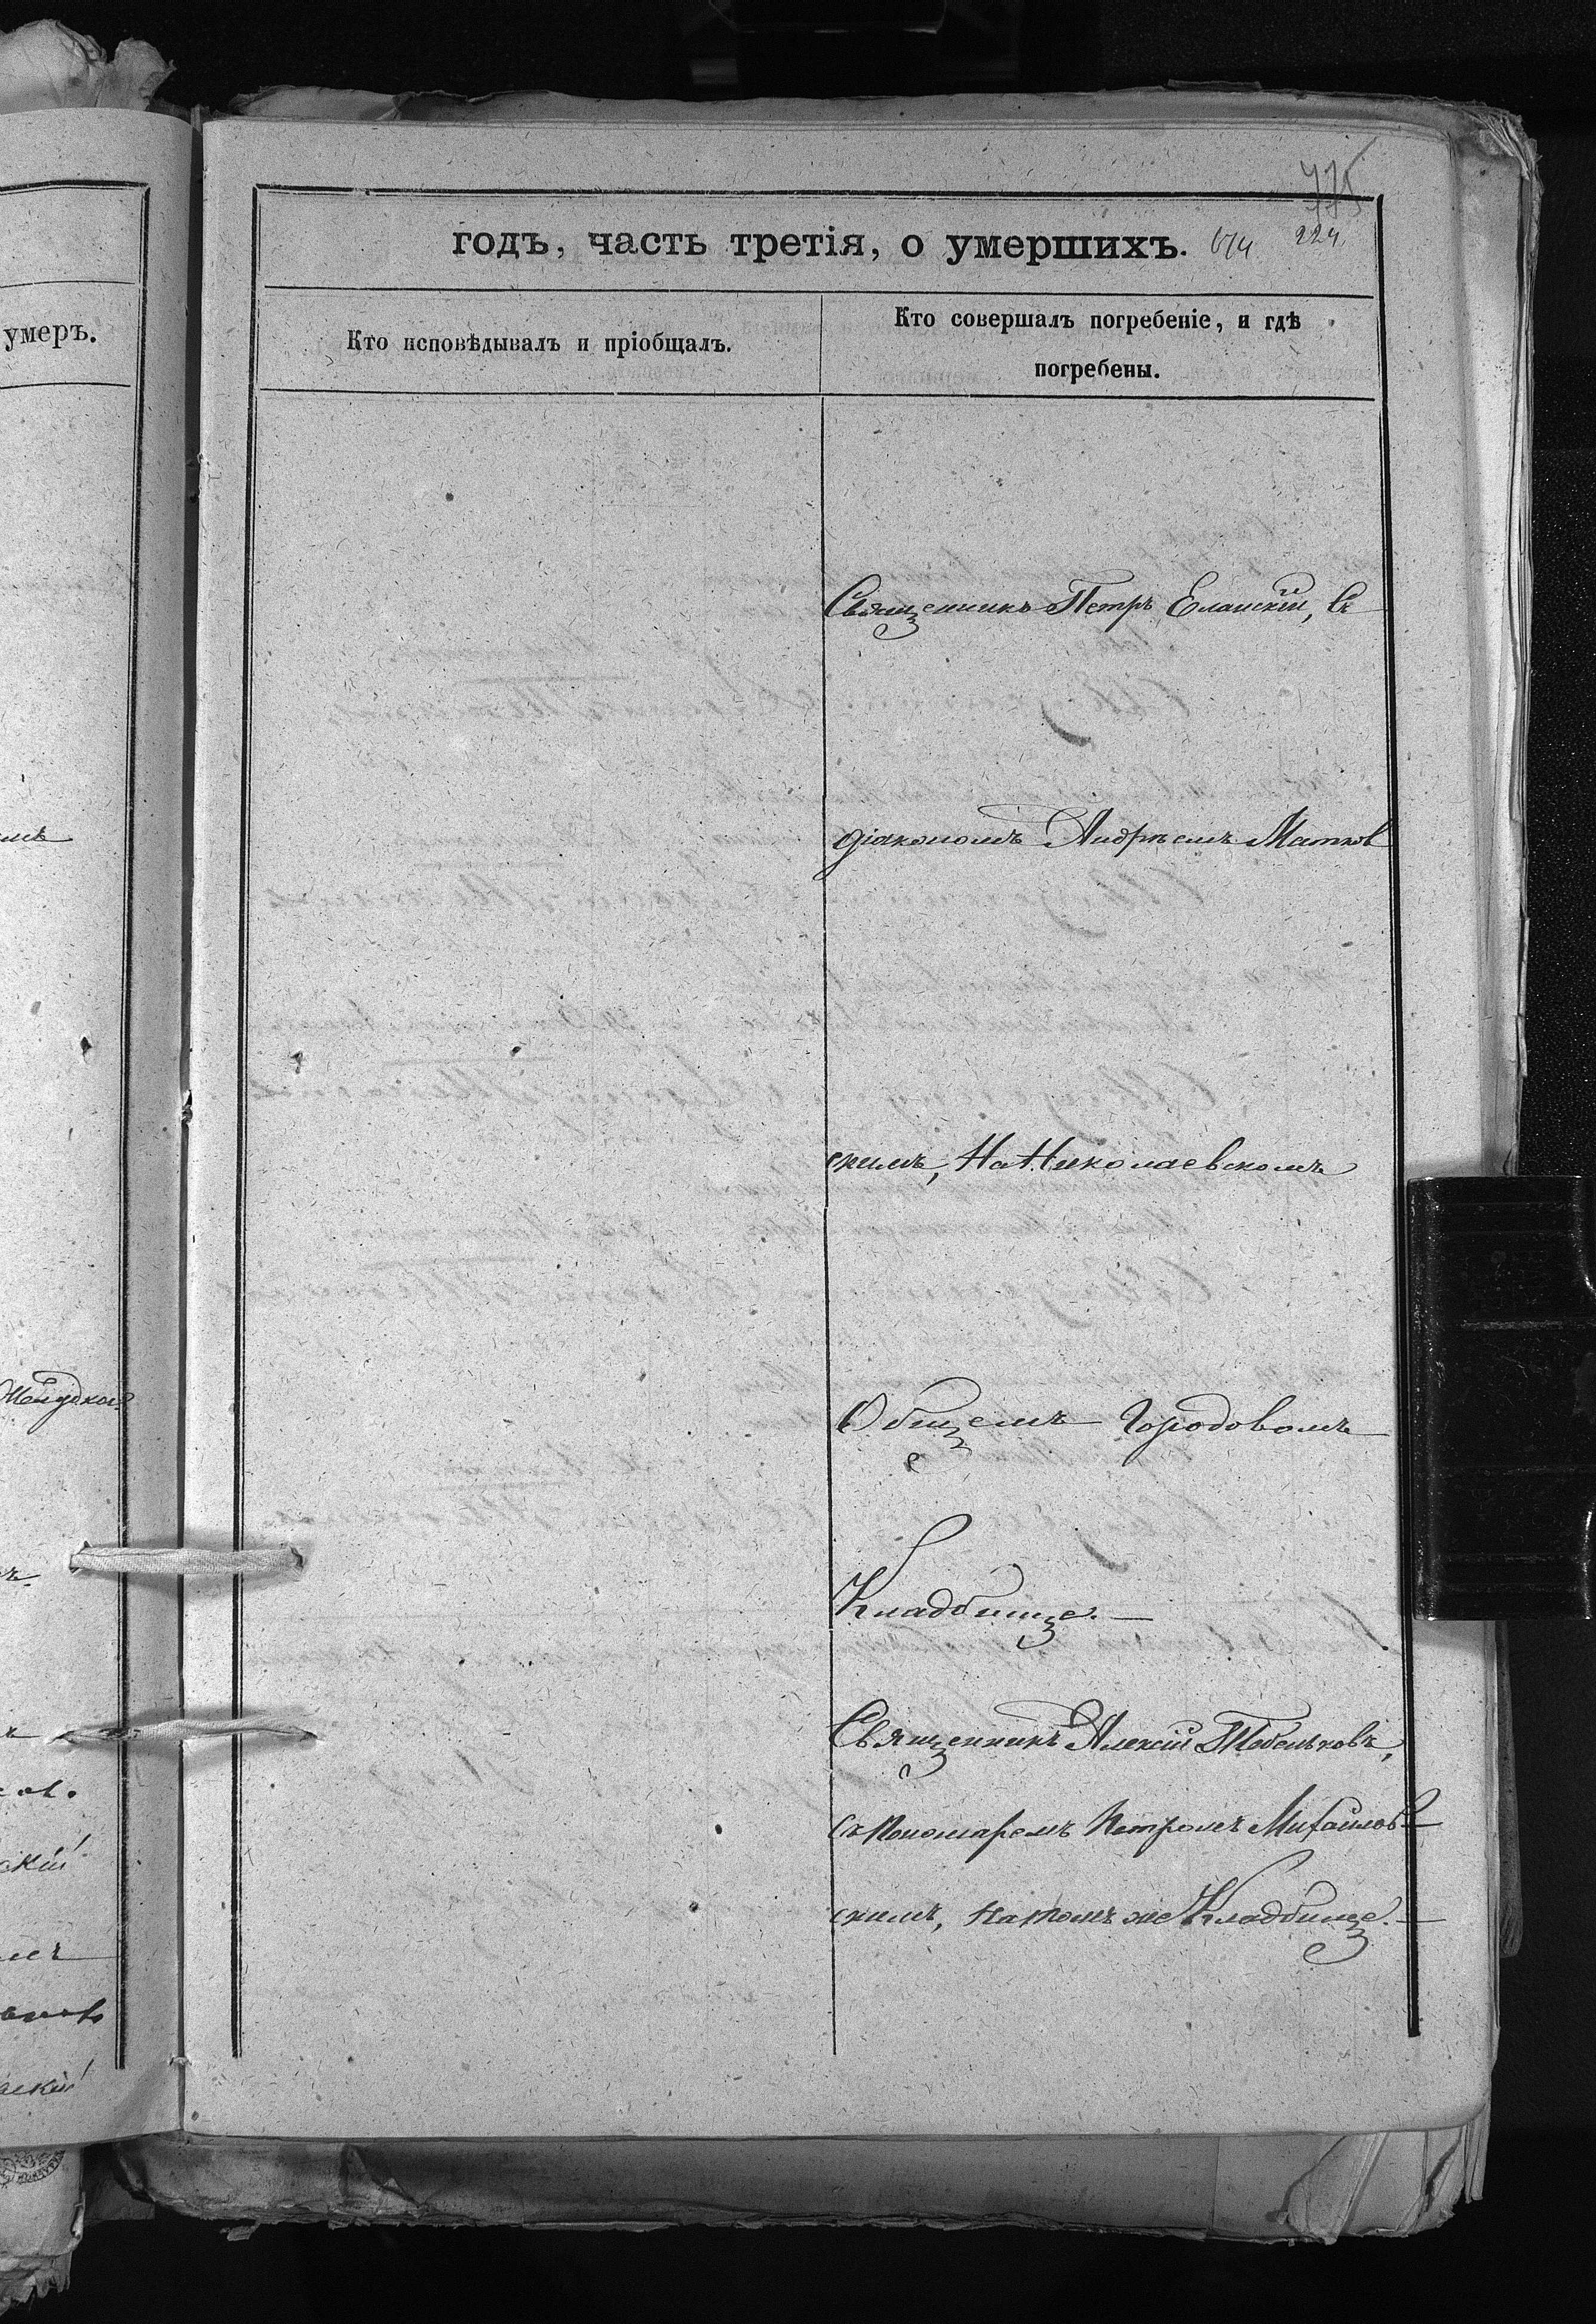 умеръ.
775
годъ, часть третія, о умершихъ.
674
224
Кто исповѣдывалъ и пріобщалъ.
Кто совершалъ погребеніе, и гдѣ
погребены.
Священникъ Петръ Еланскій, съ
діакономъ Андреемъ Матков
скимъ, На Николаевскомъ
Общемъ Городовомъ
Кладбище.—
Священникъ Алексій
съ Пономаремъ Петромъ Михайлов
скимъ, на томъ же Кладбище.—
скій